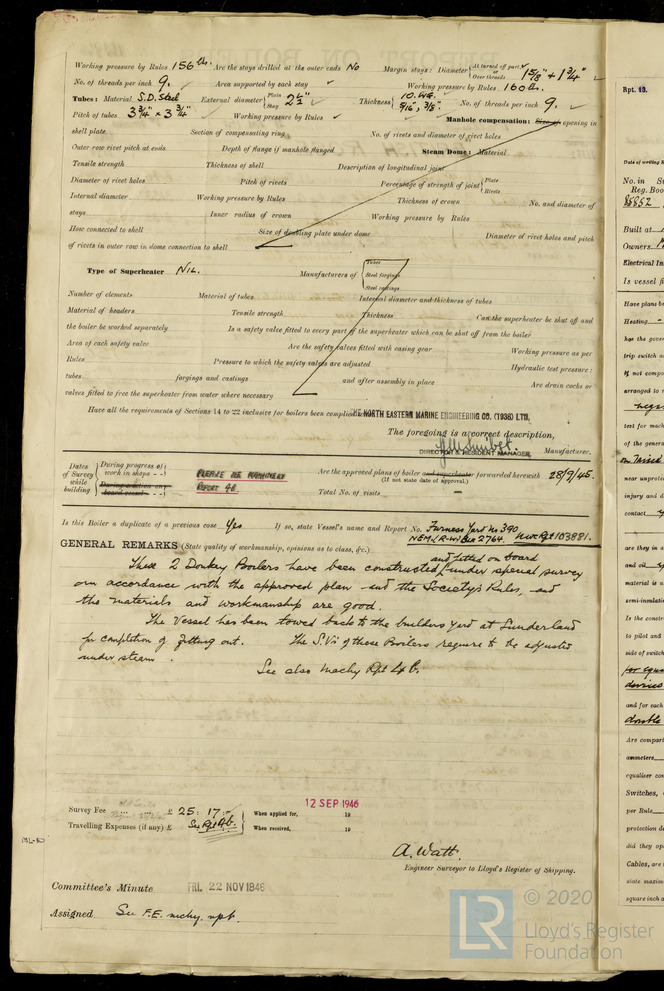 Working pressure by Rules 156 lbs. Are the stays drilled at the outer ends No Margin stays: Diameter { At turned off part, or Over threads 1 5/8" + 1 3/4"
No. of threads per inch 9. Area supported by each stay Working pressure by Rules 160 lb.
Tubes: Material S.D. Steel External diameter { Plain Stay 2 1/2" Thickness { 10.W.G. 5/16", 3/8". No. of threads per inch 9.
Pitch of tubes 3 3/4" x 3 3/4" Working pressure by Rules Manhole compensation: Size of opening in
shell plate Section of compensating ring No. of rivets and diameter of rivet holes
Outer row rivet pitch at ends Depth of flange if manhole flanged Steam Dome: Material
Tensile strength Thickness of shell Description of longitudinal joint
Diameter of rivet holes Pitch of rivets Percentage of strength of joint { Plate Rivets
Internal diameter Working pressure by Rules Thickness of crown No. and diameter of
stays Inner radius of crown Working pressure by Rules
How connected to shell Size of doubling plate under dome Diameter of rivet holes and pitch
of rivets in outer row in dome connection to shell
Type of Superheater NIL. Manufacturers of { Tubes Steel forgings Steel castings
Number of elements Material of tubes Internal diameter and thickness of tubes
Material of headers Tensile strength Thickness Can the superheater be shut off and
the boiler be worked separately Is a safety valve fitted to every part of the superheater which can be shut off from the boiler
Area of each safety valve Are the safety valves fitted with easing gear Working pressure as per
Rules Pressure to which the safety valves are adjusted Hydraulic test pressure:
tubes forgings and castings and after assembly in place Are drain cocks or
valves fitted to free the superheater from water where necessary
Have all the requirements of Sections 14 to 22 inclusive for boilers been complied
THE NORTH EASTERN MARINE ENGINEERING CO. (1938) LTD.
The foregoing is a correct description,
DIRECTOR & RESIDENT MANAGER. Manufacturer.
Dates of Survey while building { During progress of work in shops - - During erection on board vessel - - PLEASE SEE MACHINERY REPORT 4B. Are the approved plans of boiler and superheater forwarded herewith 28/9/45.
(If not state date of approval.)
Total No. of visits —
Is this Boiler a duplicate of a previous case Yes If so, state Vessel's name and Report No. Furness Yard No 390
2764. Nwc Rpt 103881.
GENERAL REMARKS (State quality of workmanship, opinions as to class, &c.)
and fitted on board
These 2 Donkey Boilers have been constructed under special survey
in accordance with the approved plan and the Society's Rules, and
the materials and workmanship are good.
The Vessel has been towed back to the builders yard at Sunderland
for completion of fitting out. The S.Vs of these Boilers require to be adjusted
under steam.
See also Machy Rpt 4B.
Survey Fee ... ... £ 25 : 17 : - When applied for, 12 SEP 1946 19
Travelling Expenses (if any) £ See Rpt 4b. When received, 19
A. Watt.
Engineer Surveyor to Lloyd's Register of Shipping.
Committee's Minute FRI. 22 NOV 1946
Assigned See F.E. machy. rpt.
Rpt. 13.
Date of writing
No. in
Reg. Boo
Built at
Owners
Electrical In
Is vessel fi
Have plans be
Heating
has the gover
trip switch as
If not compo
arranged to
test for mach
of the genera
near unprote
injury and d
contact
are they in a
and oil
material is a
semi-insulati
Is the constr
to pilot and
side of switch
for equa
devices
and for each
double
Are compart
ammeters
equaliser con
Switches,
per Rule
protection de
did they op
Cables, are
state maxim
square inch
LR
© 2020
Lloyd's Register
Foundation